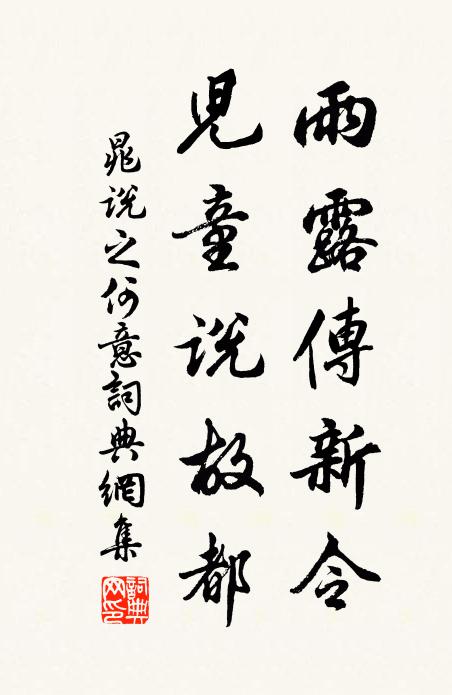 雨露傳新令
兒童說故都
晁說之何意詞典網集
詞典網印